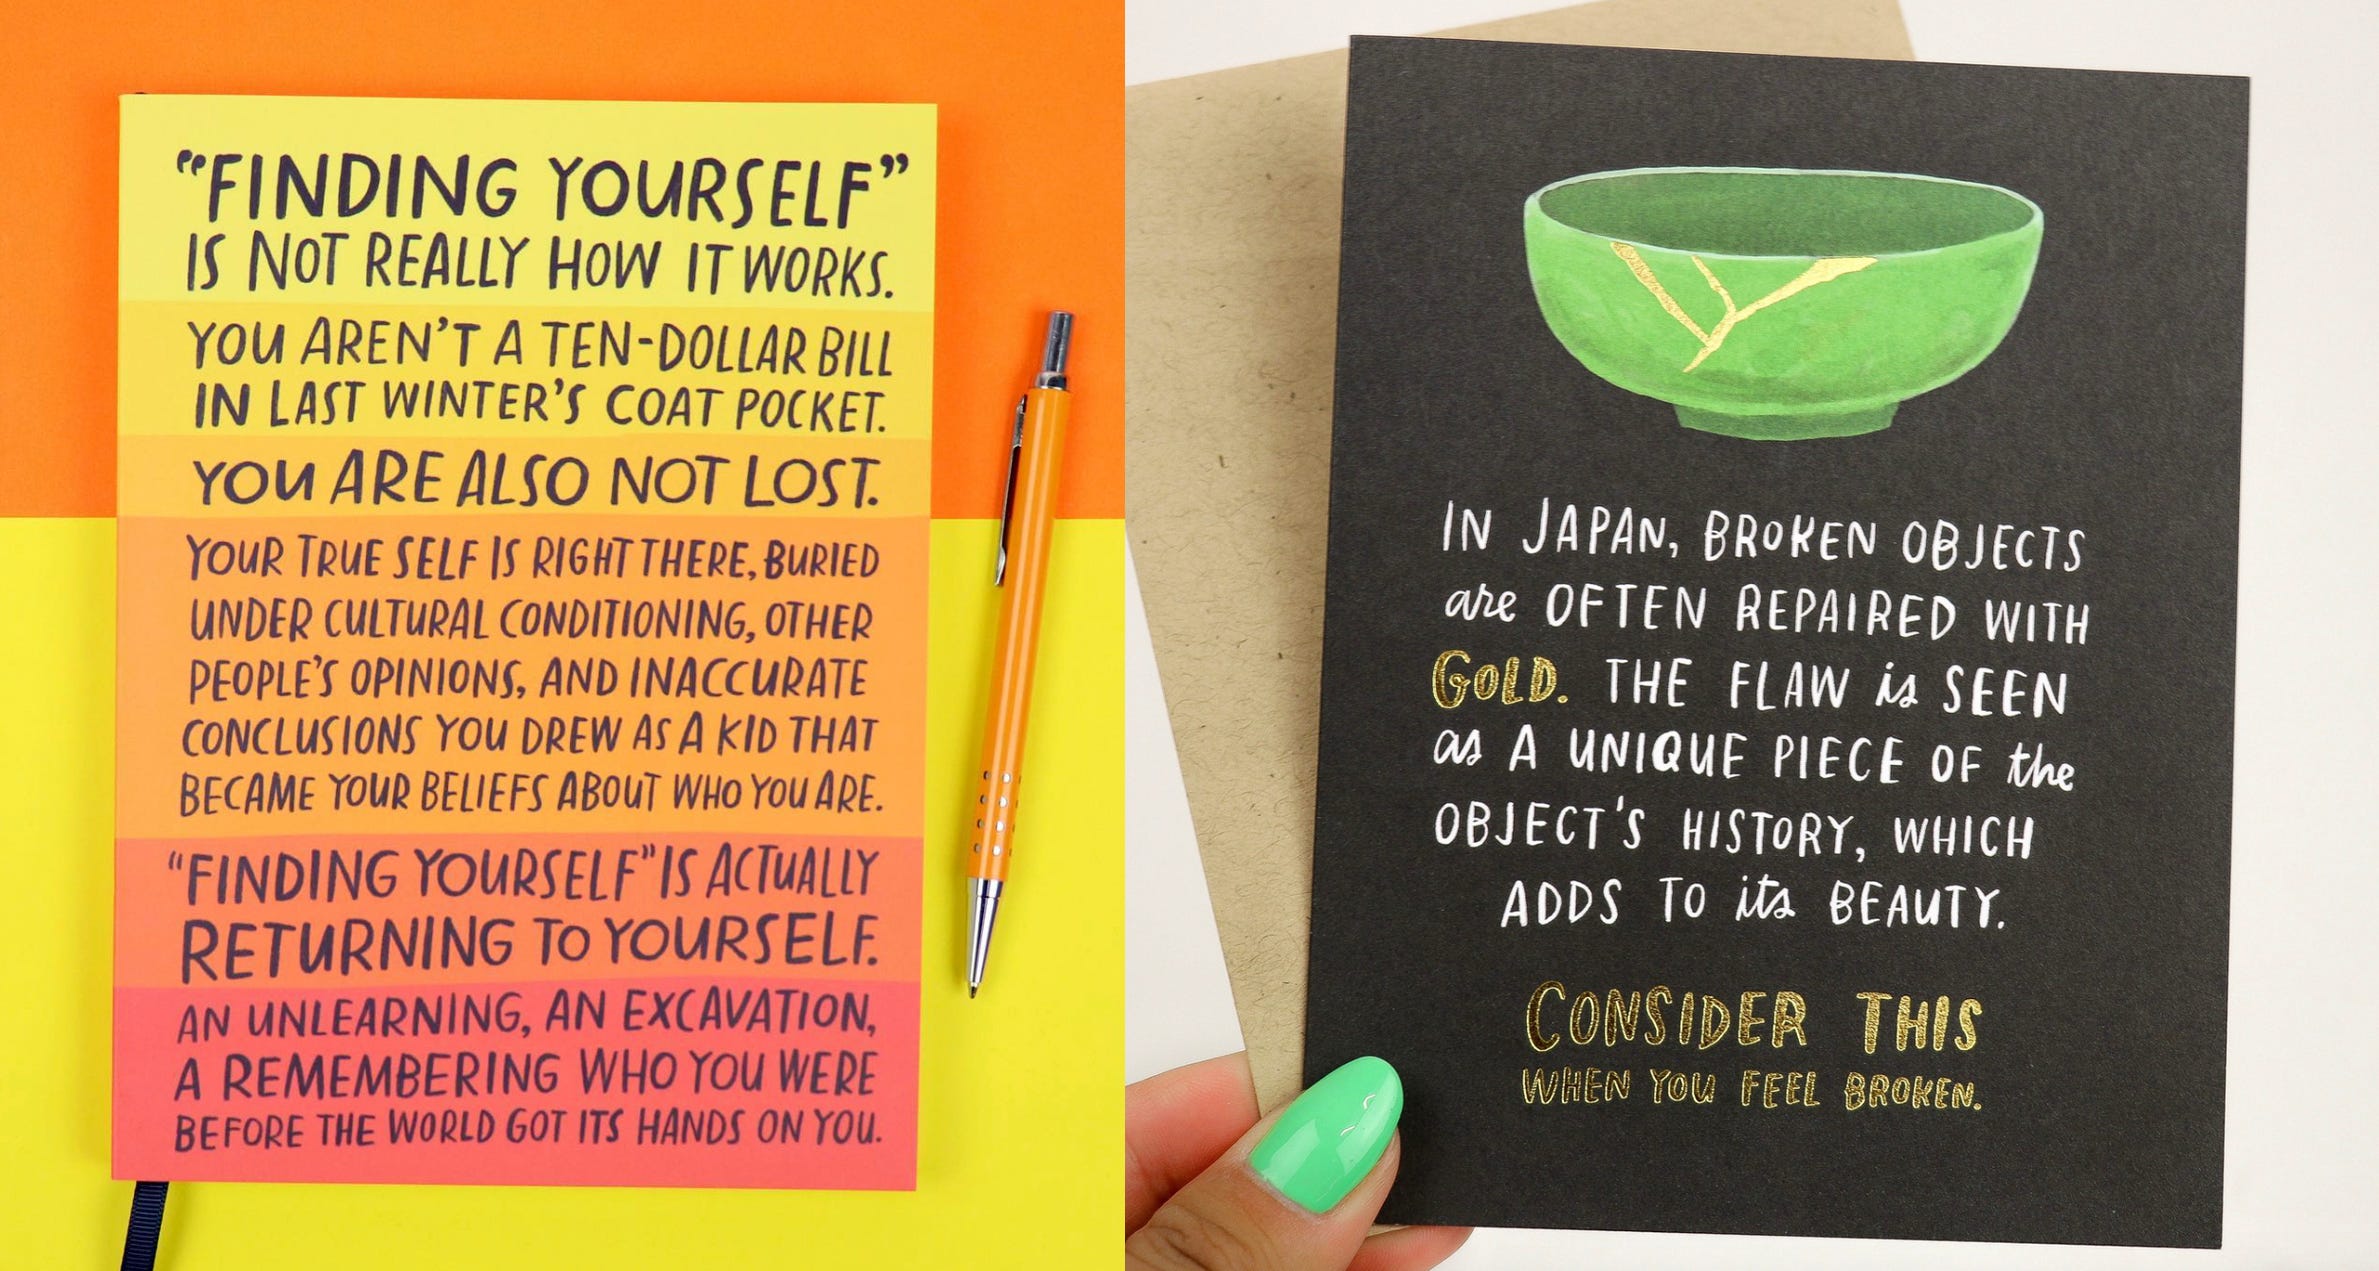 "FINDING YOURSELF"
IS NOT REALLY HOW IT WORKS.
YOU AREN'T A TEN-DOLLAR BILL
IN LAST WINTER'S COAT POCKET.
YOU ARE ALSO NOT LOST.
YOUR TRUE SELF IS RIGHT THERE, BURIED
UNDER CULTURAL CONDITIONING, OTHER
PEOPLE'S OPINIONS, AND INACCURATE
CONCLUSIONS YOU DREW AS A KID THAT
BECAME YOUR BELIEFS ABOUT WHO YOU ARE.
"FINDING YOURSELF" IS ACTUALLY
RETURNING TO YOURSELF.
AN UNLEARNING, AN EXCAVATION,
A REMEMBERING WHO YOU WERE
BEFORE THE WORLD GOT ITS HANDS ON YOU.
IN JAPAN, BROKEN OBJECTS
are OFTEN REPAIRED WITH
GOLD. THE FLAW is SEEN
as A UNIQUE PIECE OF the
OBJECT'S HISTORY, WHICH
ADDS TO its BEAUTY.
CONSIDER THIS
WHEN YOU FEEL BROKEN.